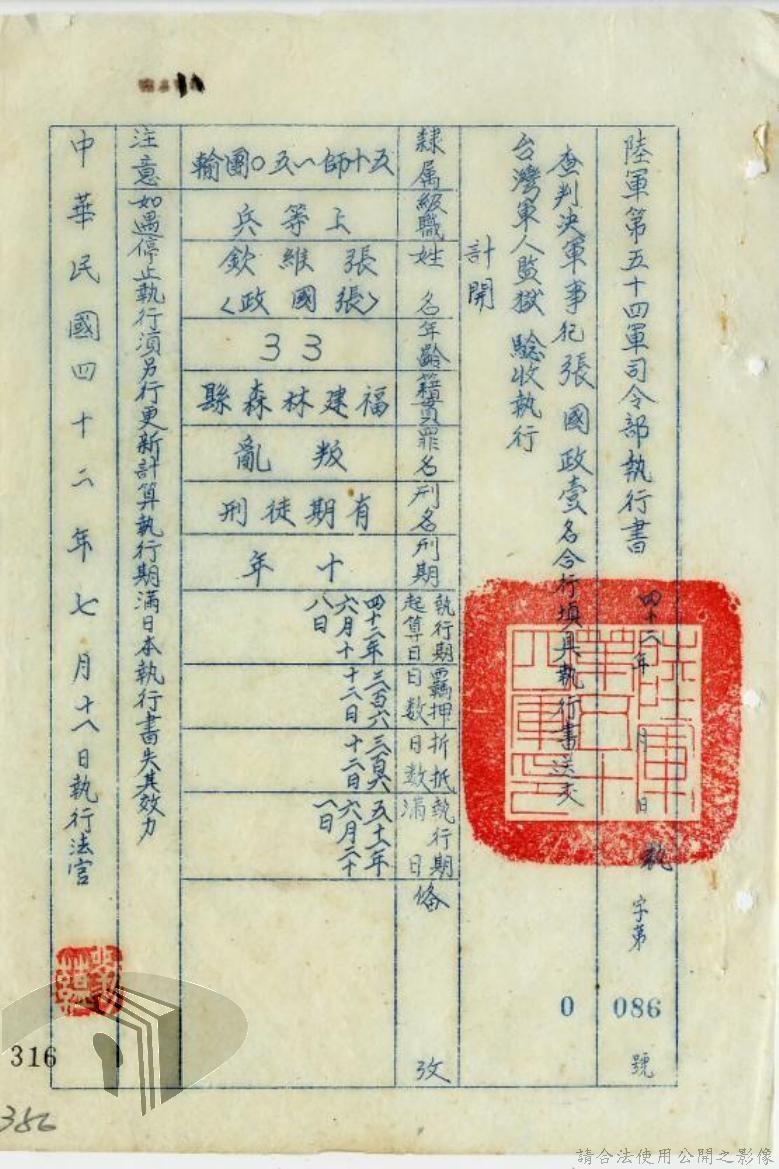 陸軍第五十四軍司令部執行書
四十二年 月 日
執字第
086
號
查判決軍事犯張國政壹名合行填具執行書送交
0
台灣軍人監獄 驗收執行
計開
隸屬級職
姓名
年齡
籍貫
罪名
刑名
刑期
執行期起算日
羈押日數
折抵日數
執行期滿日
備攷
五十師一五〇團輸
上等兵
張維欽
〈張國政〉
33
福建林森縣
叛亂
有期徒刑
十年
四十二年六月十八日
三百六十二日
三百六十二日
注意如遇停止執行須另行更新計算執行期滿日本執行書失其效力
中華民國四十二年七月十八日執行法官
陸軍第五十四軍印
316
386
請合法使用公開之影像